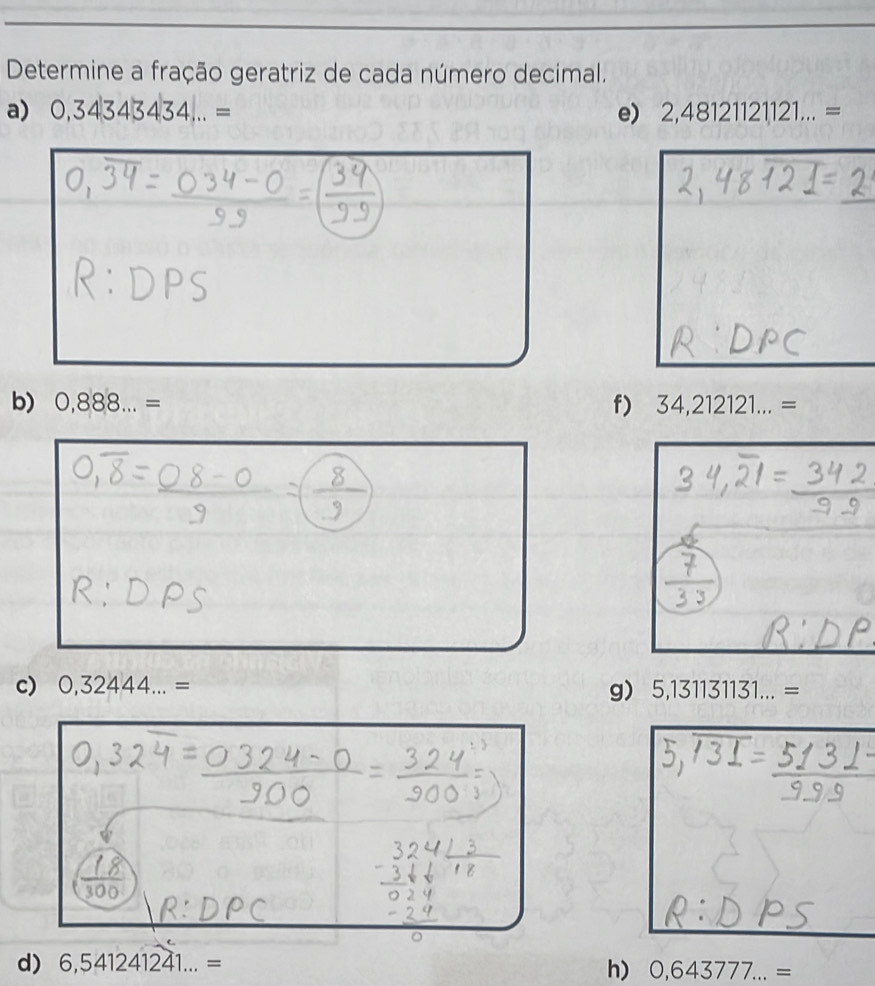 Determine a fração geratriz de cada número decimal.
a) 0,34343434... =
0,34̅ = 034-0/99 = 34/99
R: DPS
e) 2,48121121121... =
2,48121̅ = 2
R: DPC
b) 0,888... =
0,8̅ = 08-0/9 = 8/9
R: DPS
f) 34,212121... =
34,21̅ = 342/99
7/33
R: DP
c) 0,32444... =
0,324̅ = 0324-0/900 = 324/900 :3/:3 =
18/300
R: DPC
324 | 3
-3 18
024
-24
0
g) 5,131131131... =
5,131̅ = 5131-/999
R: DPS
d) 6,541241241... =
h) 0,643777... =